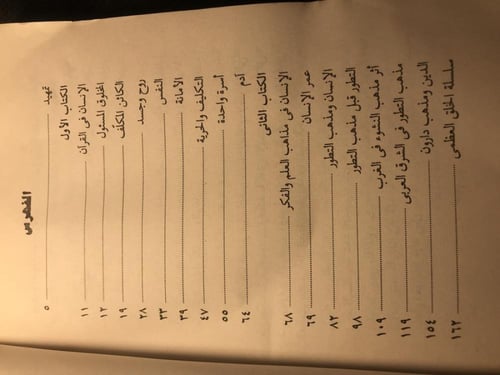 الفهرس
تمهيد ٥
الكتاب الأول
الإنسان فى القرآن ١١
المخلوق المسئول ١٢
الكائن المكلف ١٩
روح وجسد ٢٨
النفس ٣٣
الأمانة ٣٩
التكليف والحرية ٤٧
أسرة واحدة ٥٥
آدم ٦٤
الكتاب الثانى
الإنسان فى مذاهب العلم والفكر ٦٨
عمر الإنسان ٦٩
الإنسان ومذهب التطور ٨٢
التطور قبل مذهب التطور ٩٨
أثر مذهب النشوء فى الغرب ١٠٩
مذهب التطور فى الشرق العربى ١١٩
الدين ومذهب دارون ١٥٤
سلسلة الخلق العظمى ١٦٢